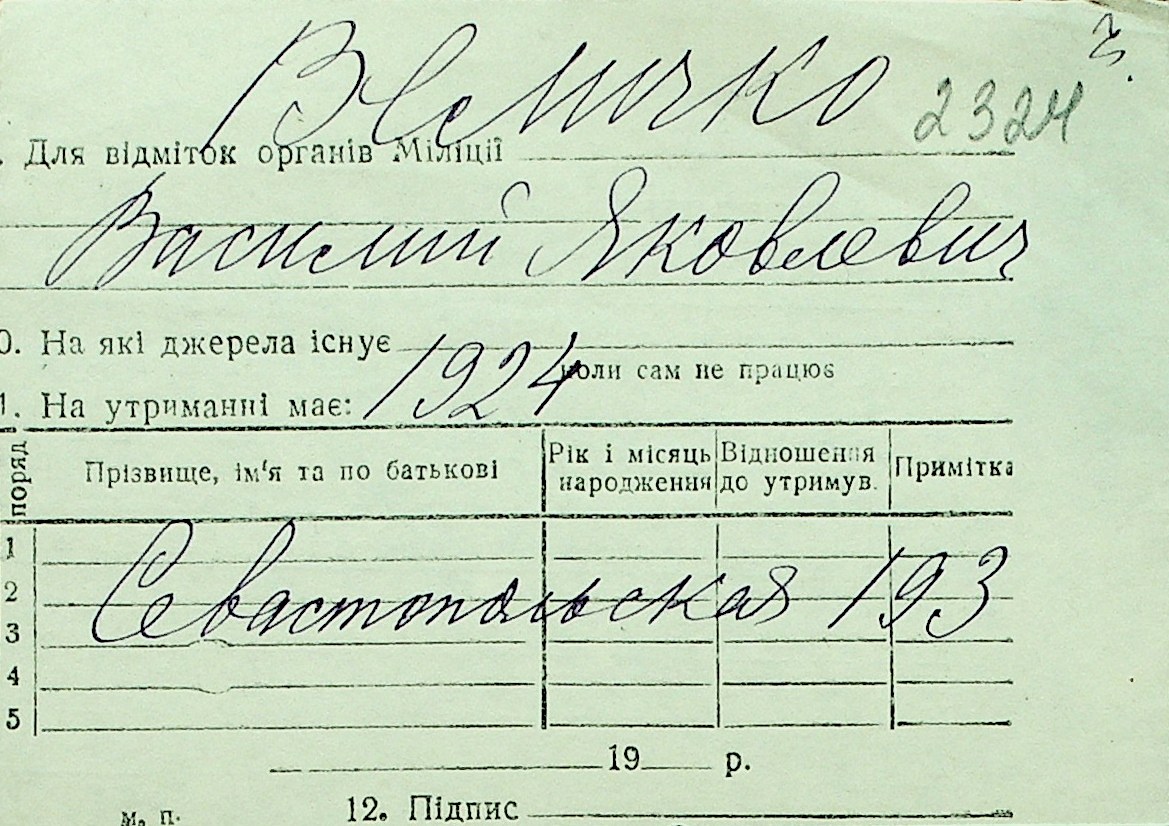 Величко
ч.
2324
. Для відміток органів Міліції
Василий Яковлевич
0. На які джерела існує
коли сам не працює
1. На утриманні має:
1924
поряд Прізвище, ім'я та по батькові Рік і місяць народження Відношення до утримув. Примітка
1
2
Севастопольская 193
3
4
5
19 р.
м. п. 12. Підпис